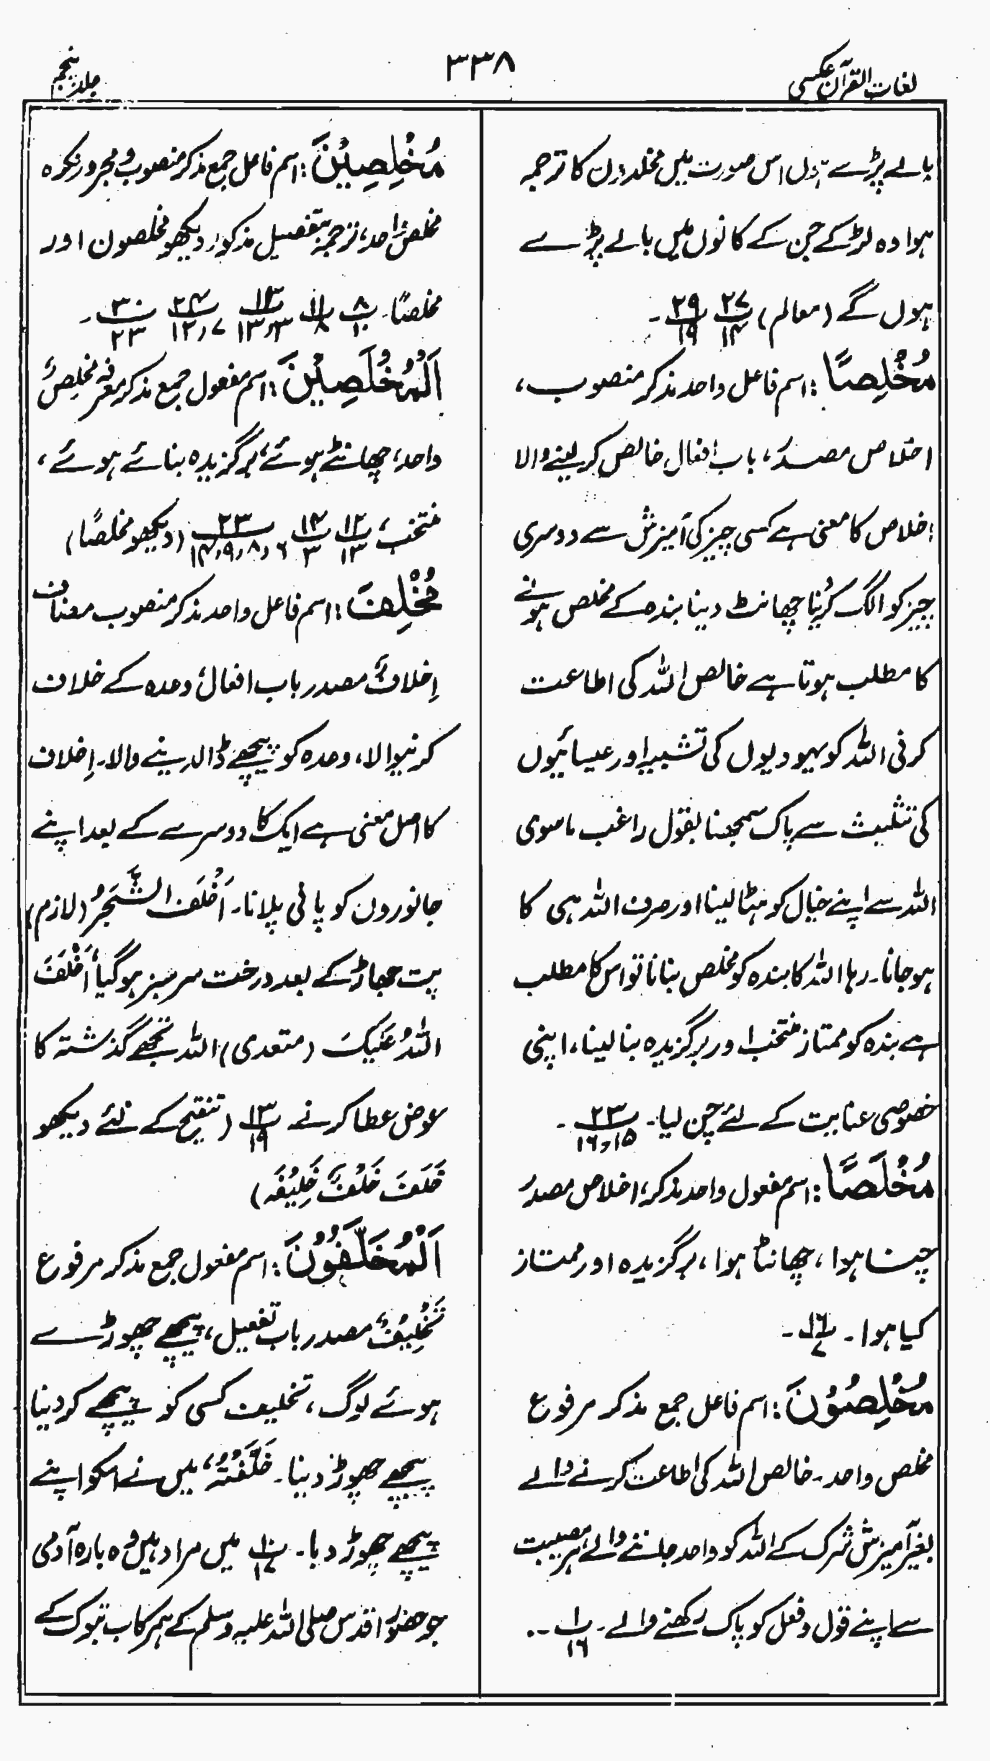 لغات القرآن عکسی
۳۳۸
جلد پنجم
بالے پڑے ہوں اس صورت میں مخلدون کا ترجمہ
ہوا وہ لڑکے جن کے کانوں میں بالے پڑے
ہوں گے (معالم) پ۲۷/۱۴ پ۲۹/۱۹۔
مُخْلِصًا: اسم فاعل واحد مذکر منصوب،
اخلاص مصدر، باب افعال خالص کر لینے والا
اخلاص کا معنی ہے کسی چیز کی آمیزش سے دوسری
چیز کو الگ کرنا چھانٹ دینا بندہ کے مخلص ہونے
کا مطلب ہوتا ہے خالص اللہ کی اطاعت
کرنی اللہ کو یہودیوں کی تشبیہ اور عیسائیوں
کی تثلیث سے پاک سمجھنا بقول راغب ماسوی
اللہ سے اپنے خیال کو ہٹا لینا اور صرف اللہ ہی کا
ہو جانا۔ رہا اللہ کا بندہ کو مخلص بنانا تو اس کا مطلب
ہے بندہ کو ممتاز منتخب اور برگزیدہ بنا لینا، اپنی
خصوصی عنایت کے لئے چن لیا۔ پ۲۳/۱۵،۱۶۔
مُخْلَصًا: اسم مفعول واحد مذکر، اخلاص مصدر
چنا ہوا، چھانٹا ہوا، برگزیدہ اور ممتاز
کیا ہوا۔ پ۱۶/۷۔
مُخْلِصُوْنَ: اسم فاعل جمع مذکر مرفوع
مخلص واحد۔ خالص اللہ کی اطاعت کرنے والے
بغیر آمیزش شرک کے اللہ کو واحد جاننے والے ہر مصیبت
سے اپنے قول و فعل کو پاک رکھنے والے۔ پ۱/۱۶۔۔
مُخْلِصِيْنَ: اسم فاعل جمع مذکر منصوب و مجرور نکرہ
مخلص واحد، ترجمہ بتفصیل مذکور، دیکھو مخلصون اور
مخلصًا۔ پ۸/۱۰ پ۱۱/۸ پ۱۳،۳ پ۲۴/۱۲،۷ پ۳۰/۲۳۔
اَلْمُخْلَصِيْنَ: اسم مفعول جمع مذکر معرفہ مخلص
واحد، چھانٹے ہوئے، برگزیدہ بنائے ہوئے،
منتخب، پ۱۲/۱۳ پ۱۴/۳ پ۲۳/۶،۸،۹،۱۴ (دیکھو مخلصًا)
مُخْلِفَ: اسم فاعل واحد مذکر منصوب مضاف
اِخلافٌ مصدر باب افعال وعدہ کے خلاف
کرنیوالا، وعدہ کو پیچھے ڈالدینے والا۔ اِخلاف
کا اصل معنی ہے ایک کا دوسرے کے بعد اپنے
جانوروں کو پانی پلانا۔ اَخْلَفَ الشَّجَرُ (لازم)
پت جھاڑ کے بعد درخت سرسبز ہو گیا، اَخْلَفَ
اللّٰهُ عَلَيْكَ (متعدی) اللہ تجھے گذشتہ کا
عوض عطا کرنے پ۱۳/۱۹ (تنقیح کے لئے دیکھو
خَلَفَ خَلْفٌ خَلِيْفَه)
اَلْمُخَلَّفُوْنَ: اسم مفعول جمع مذکر مرفوع
تَخْلِيْفٌ مصدر باب تفعیل، پیچھے چھوڑے
ہوئے لوگ، تخلیف کسی کو پیچھے کر دینا
پیچھے چھوڑ دینا۔ خَلَّفْتُهٗ، میں نے اسکو اپنے
پیچھے چھوڑ دیا۔ پ۱۰/۱۷ میں مراد ہیں وہ بارہ آدمی
جو حضور اقدس صلی اللہ علیہ وسلم کے ہمرکاب تبوک کے